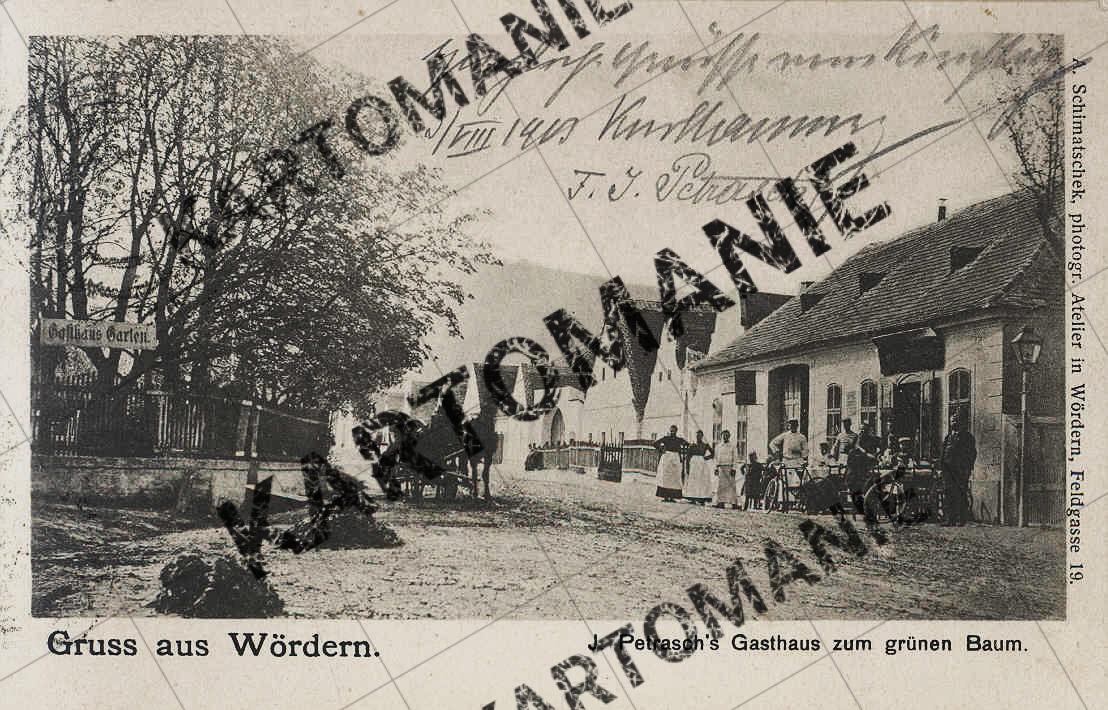 Grüsse vom
/VIII 1903
F. J. Petrasch
Gasthaus Garten.
A. Schimatschek, photogr. Atelier in Wördern, Feldgasse 19.
Gruss aus Wördern.
J. Petrasch's Gasthaus zum grünen Baum.
KARTOMANIE
KARTOMANIE
KARTOMANIE
KARTOMANIE
KARTOMANIE